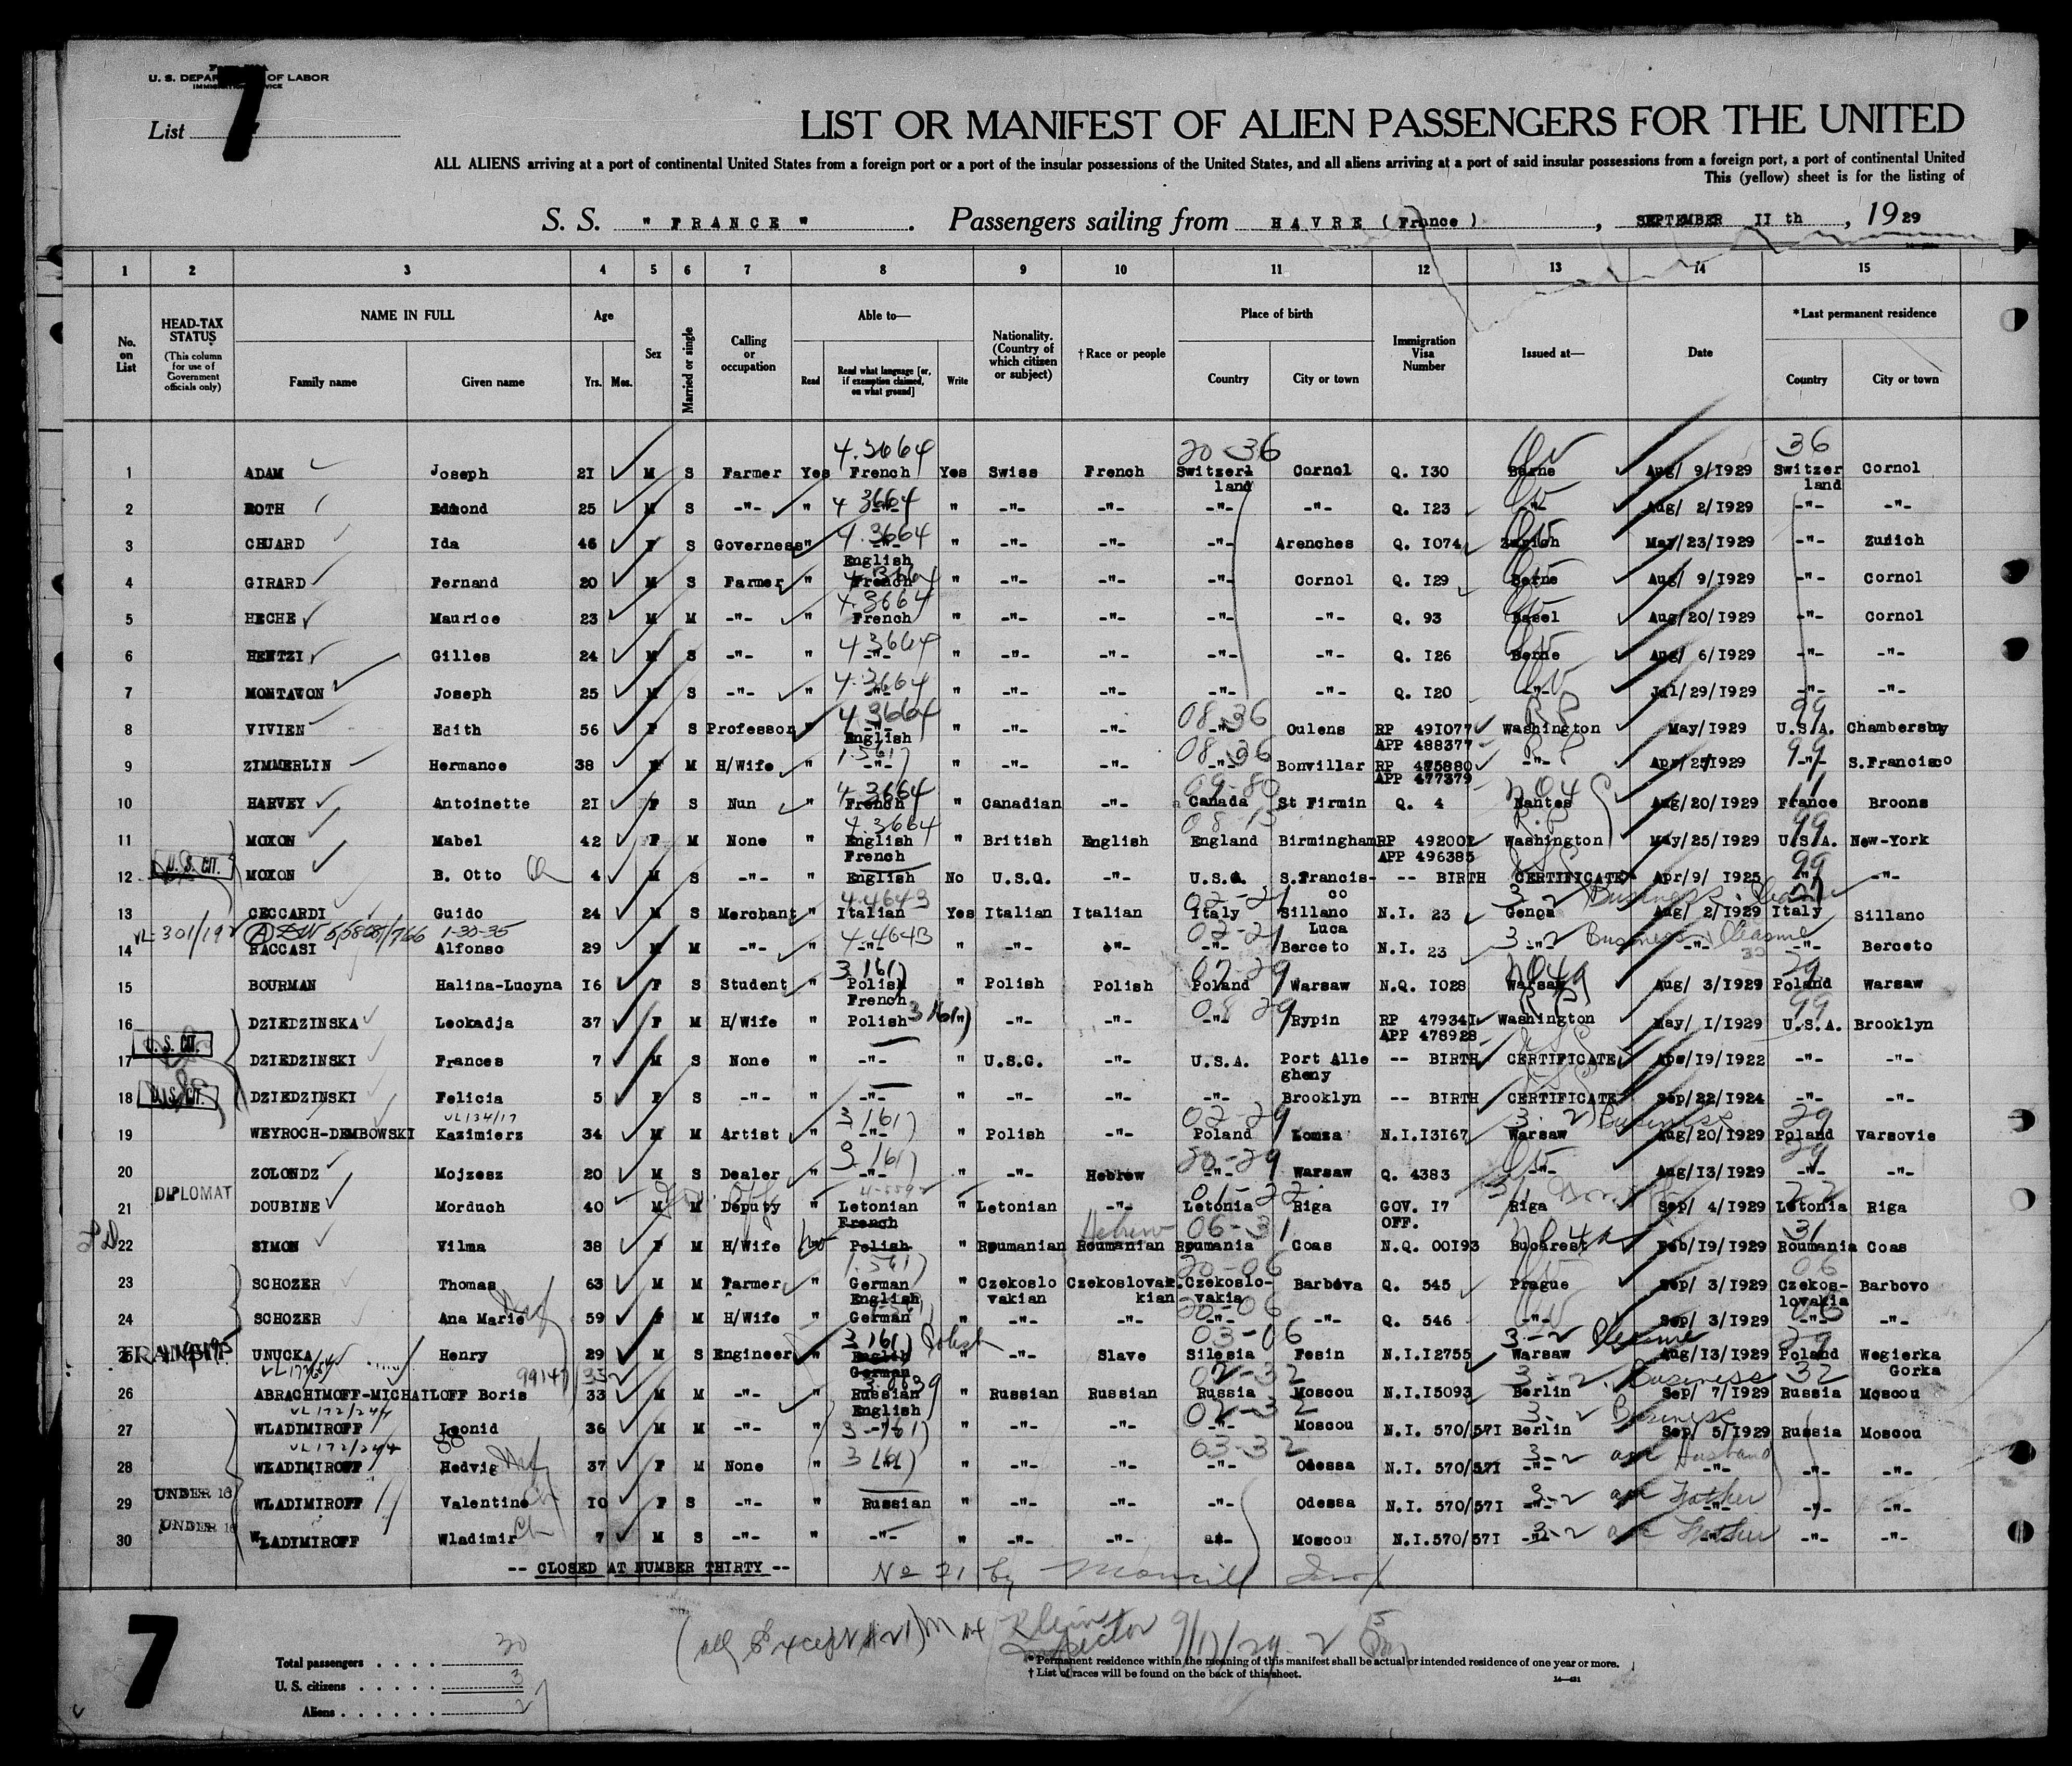 U. S. DEPARTMENT OF LABOR
7
List
LIST OR MANIFEST OF ALIEN PASSENGERS FOR THE UNITED
ALL ALIENS arriving at a port of continental United States from a foreign port or a port of the insular possessions of the United States, and all aliens arriving at a port of said insular possessions from a foreign port, a port of continental United
This (yellow) sheet is for the listing of
S. S. " FRANCE " . Passengers sailing from HAVRE ( France ) , SEPTEMBER IIth , 1929
1 2 3 4 5 6 7 8 9 10 11 12 13 14 15
No. on List HEAD-TAX STATUS (This column for use of Government officials only) NAME IN FULL Family name Given name Age Yrs. Mos. Sex Married or single Calling or occupation Able to— Read Read what language [or, if exemption claimed, on what ground] Write Nationality. (Country of which citizen or subject) †Race or people Place of birth Country City or town Immigration Visa Number Issued at— Date *Last permanent residence Country City or town
4.3664 20-36 36
1 ADAM Joseph 21 M S Farmer Yes French Yes Swiss French Switzerland Cornol Q. I30 Berne Aug/ 9/1929 Switzerland Cornol
2 ROTH Edmond 25 M S -"- " 4 3664 -"- " -"- -"- -"- -"- Q. I23 -"- Aug/ 2/1929 -"- -"-
3 CHUARD Ida 46 F S Governess " 4.3664 -"- English " -"- -"- -"- Arenches Q. I074 Zurich May/23/1929 -"- Zurich
4 GIRARD Fernand 20 M S Farmer " French " -"- -"- -"- Cornol Q. I29 Berne Aug/ 9/1929 -"- Cornol
5 HECHE Maurice 23 M M -"- " 4.3664 French " -"- -"- -"- -"- Q. 93 Basel Aug/20/1929 -"- Cornol
6 HENTZI Gilles 24 M S -"- " 4 3664 -"- " -"- -"- -"- -"- Q. I26 Berne Aug/ 6/1929 -"- -"-
7 MONTAVON Joseph 25 M S -"- " 4.3664 -"- " -"- -"- -"- -"- Q. I20 -"- Jul/29/1929 -"- -"-
8 VIVIEN Edith 56 F S Professor " 4 3664 -"- English " -"- -"- 08-36 -"- Oulens RP 491077 APP 488377 Washington May/1929 99 U.S.A. Chambersby
9 ZIMMERLIN Hermance 38 F M H/Wife " -"- " -"- -"- 08-36 -"- Bonvillar RP 475880 APP 477379 -"- Apr/25/1929 99 -"- S.Francisco
10 HARVEY Antoinette 21 F S Nun " 4 3664 French " Canadian -"- Canada St Firmin Q. 4 Nantes Aug/20/1929 France Broons
11 MOXON Mabel 42 F M None " 4.3664 English French " British English England Birmingham RP 492002 APP 496385 Washington May/25/1929 99 U.S.A. New-York
12 U. S. CIT. MOXON B. Otto 4 M S -"- English No U.S.C. -"- U.S.A. S.Francisco -- BIRTH CERTIFICATE Apr/9/ 1925 99 -"- -"-
13 CECCARDI Guido 24 M S Merchant " Italian Yes Italian Italian Italy Sillano Luca N.I. 23 Genoa Aug/ 2/1929 Italy Sillano
14 RACCASI Alfonso 29 M M -"- " 4-4643 -"- " -"- -"- -"- Berceto N.I. 23 -"- -"- -"- Berceto
15 BOURMAN Halina-Lucyna 16 F S Student " Polish French " Polish Polish Poland Warsaw N.Q. I028 Warsaw Aug/ 3/1929 Poland Warsaw
16 DZIEDZINSKA Leokadja 37 F M H/Wife " Polish " -"- -"- -"- Rypin RP 479341 APP 478928 Washington May/ 1/1929 99 U.S.A. Brooklyn
17 U. S. CIT. DZIEDZINSKI Frances 7 M S None " -"- " U.S.C. -"- U.S.A. Port Allegheny -- BIRTH CERTIFICATE Apr/19/1922 -"- -"-
18 U. S. CIT. DZIEDZINSKI Felicia 5 F S -"- " -"- " -"- -"- -"- Brooklyn -- BIRTH CERTIFICATE Sep/22/1924 -"- -"-
19 WEYROCH-DEMBOWSKI Kazimierz 34 M M Artist " -"- " Polish -"- Poland Lomza N.I.I3I67 Warsaw Business Aug/20/1929 Poland Varsovie
20 ZOLONDZ Mojzesz 20 M S Dealer " -"- " -"- Hebrew -"- Warsaw Q. 4383 -"- Aug/13/1929 -"- -"-
21 DIPLOMAT DOUBINE Morduch 40 M M Deputy " Letonian French " Letonian -"- Letonia Riga GOV. I7 OFF. Riga Sep/ 4/1929 Letonia Riga
22 SIMON Vilma 38 F M H/Wife Polish " Roumanian Hebrew Roumanian Roumania Coas N.Q. 00I93 Bucarest Feb/19/1929 31 Roumania Coas
23 SCHOZER Thomas 63 M M Farmer " German English " Czekoslovakian Czekoslovakian Czekoslovakia Barbova Q. 545 Prague Sep/ 3/1929 06 Czekoslovakia Barbovo
24 SCHOZER Ana Marie 59 F M H/Wife " German " -"- -"- -"- -"- Q. 546 -"- Sep/ 3/1929 -"- -"-
25 UNUCKA Henry 29 M S Engineer " English German Polish " -"- Slave 03-06 Silesia Fesin N.I.I2755 Warsaw Aug/13/1929 Poland Wegierka Gorka
26 ABRACHIMOFF-MICHAILOFF Boris 33 M M -"- " Russian English " Russian Russian Russia Moscou N.I.I5093 Berlin Business Sep/ 7/1929 32 Russia Moscou
27 WLADIMIROFF Leonid 36 M M -"- " -"- " -"- -"- -"- Moscou N.I. 570/571 Berlin Business Sep/ 5/1929 Russia Moscou
28 WLADIMIROFF Hedvig 37 F M None " -"- " -"- -"- 03-32 -"- Odessa N.I. 570/571 -"- Husband -"- -"- -"-
29 UNDER 16 WLADIMIROFF Valentine 10 F S -"- " Russian " -"- -"- -"- Odessa N.I. 570/571 -"- Father -"- -"- -"-
30 UNDER 16 WLADIMIROFF Wladimir 7 M S -"- " -"- " -"- -"- Moscou N.I.570/571 -"- Father -"- -"- -"-
-- CLOSED AT NUMBER THIRTY --
7
Total passengers . . . . 30
U. S. citizens . . . . . 3
Aliens . . . . . . 27
(all Except # 21) Inspector 9/17/29
*Permanent residence within the meaning of this manifest shall be actual or intended residence of one year or more.
† List of races will be found on the back of this sheet.